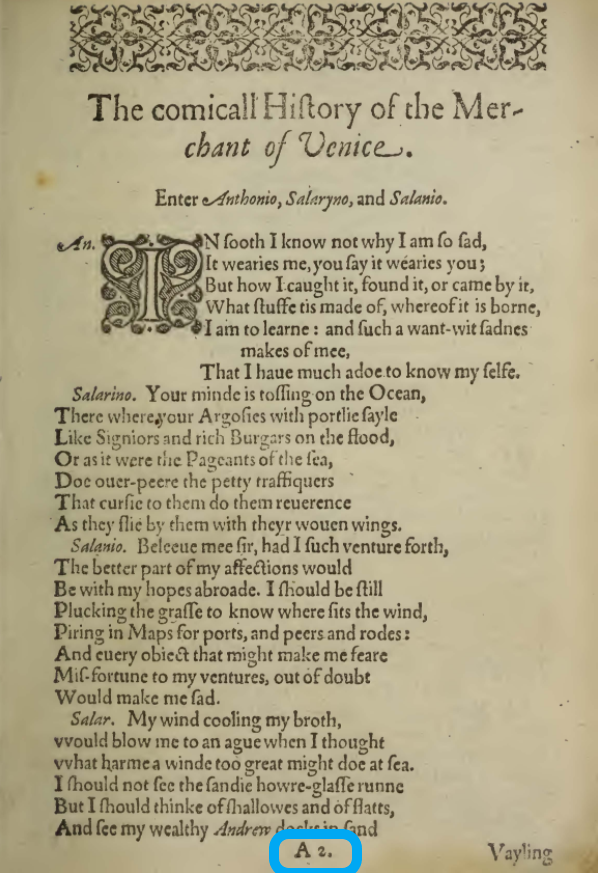 The comicall Hiſtory of the Mer-
chant of Venice.
Enter Anthonio, Salaryno, and Salanio.
An. IN ſooth I know not why I am ſo ſad,
It wearies me, you ſay it wearies you;
But how I caught it, found it, or came by it,
What ſtuffe tis made of, whereof it is borne,
I am to learne: and ſuch a want-wit ſadnes
makes of mee,
That I haue much adoe to know my ſelfe.
Salarino. Your minde is toſſing on the Ocean,
There where your Argoſies with portlie ſayle
Like Signiors and rich Burgars on the flood,
Or as it were the Pageants of the ſea,
Doe ouer-peere the petty traffiquers
That curſie to them do them reuerence
As they flie by them with theyr wouen wings.
Salanio. Beleeue mee ſir, had I ſuch venture forth,
The better part of my affections would
Be with my hopes abroade. I ſhould be ſtill
Plucking the graſſe to know where ſits the wind,
Piring in Maps for ports, and peers and rodes:
And euery obiect that might make me feare
Miſ-fortune to my ventures, out of doubt
Would make me ſad.
Salar. My wind cooling my broth,
vvould blow me to an ague when I thought
vvhat harme a winde too great might doe at ſea.
I ſhould not ſee the ſandie howre-glaſſe runne
But I ſhould thinke of ſhallowes and of flatts,
And ſee my wealthy Andrew docks in ſand
A 2.
Vayling